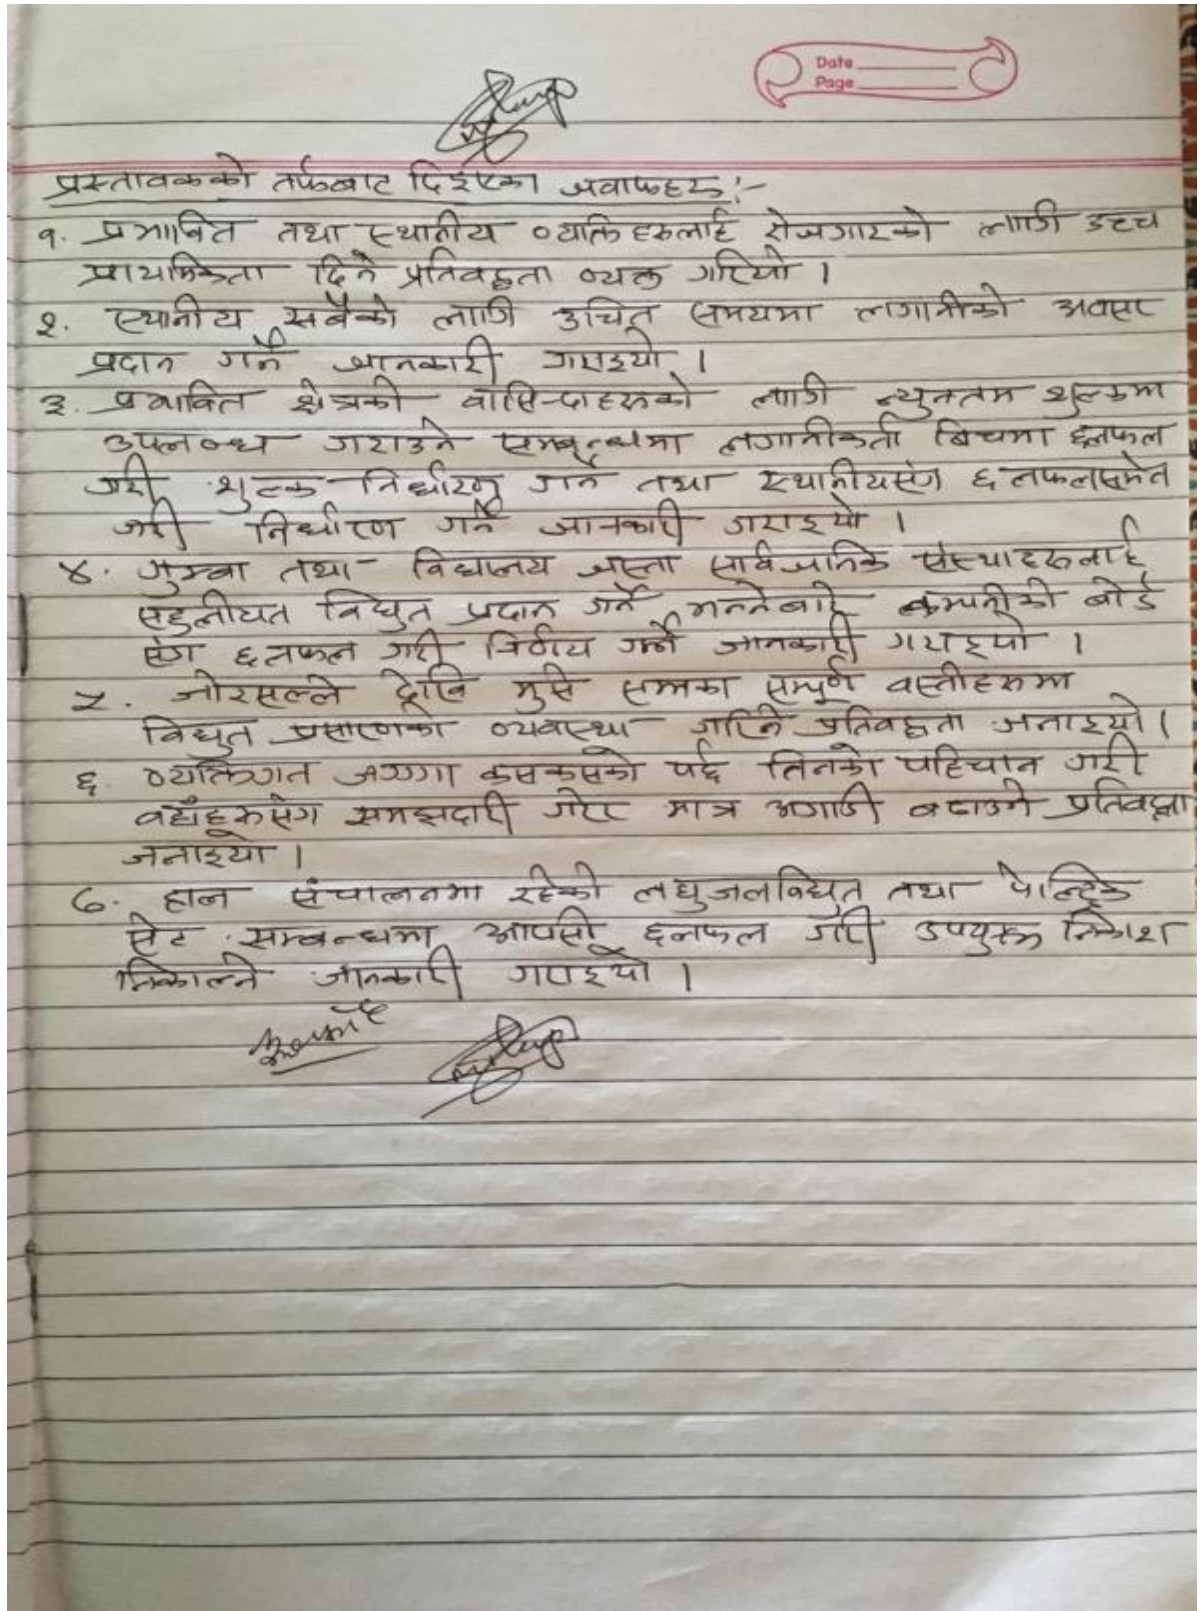 Date
Page
प्रस्तावकको तर्फबाट दिईएका जवाफहरु :-
१. प्रभावित तथा स्थानीय व्यक्तिहरुलाई रोजगारको लागि उच्च
प्राथमिकता दिने प्रतिवद्धता व्यक्त गरियो ।
२. स्थानीय सबैको लागि उचित समयमा लगानीको अवसर
प्रदान गर्ने जानकारी गराइयो ।
३. प्रभावित क्षेत्रको वासिन्दाहरुको लागि न्युनतम शुल्कमा
उपलब्ध गराउने सम्बन्धमा लगानीकर्ता बिचमा छलफल
गरी शुल्क निर्धारण गर्ने तथा स्थानीयसंग छलफलसमेत
गरी निर्धारण गर्ने जानकारी गराइयो ।
४. गुम्बा तथा विद्यालय जस्ता सार्वजनिक संस्थाहरुलाई
सहुलीयत विद्युत प्रदान गर्ने भन्नेबारे कम्पनीको बोर्ड
संग छलफल गरी निर्णय गर्ने जानकारी गराइयो ।
५. जोरसल्ले देखि मुसे सम्मका सम्पूर्ण वस्तीहरुमा
विद्युत प्रसारणको व्यवस्था गरिने प्रतिवद्धता जनाइयो ।
६. व्यक्तिगत जग्गा कसकसको पर्छ तिनको पहिचान गरी
वहाँहरुसंग समझदारी गरेर मात्र अगाडी बढाउने प्रतिवद्धता
जनाइयो ।
७. हाल संचालनमा रहेको लघुजलविद्युत तथा पेल्ट्रिक
सेट सम्बन्धमा आपसी छलफल गरी उपयुक्त निकाश
निकाल्ने जानकारी गराइयो ।